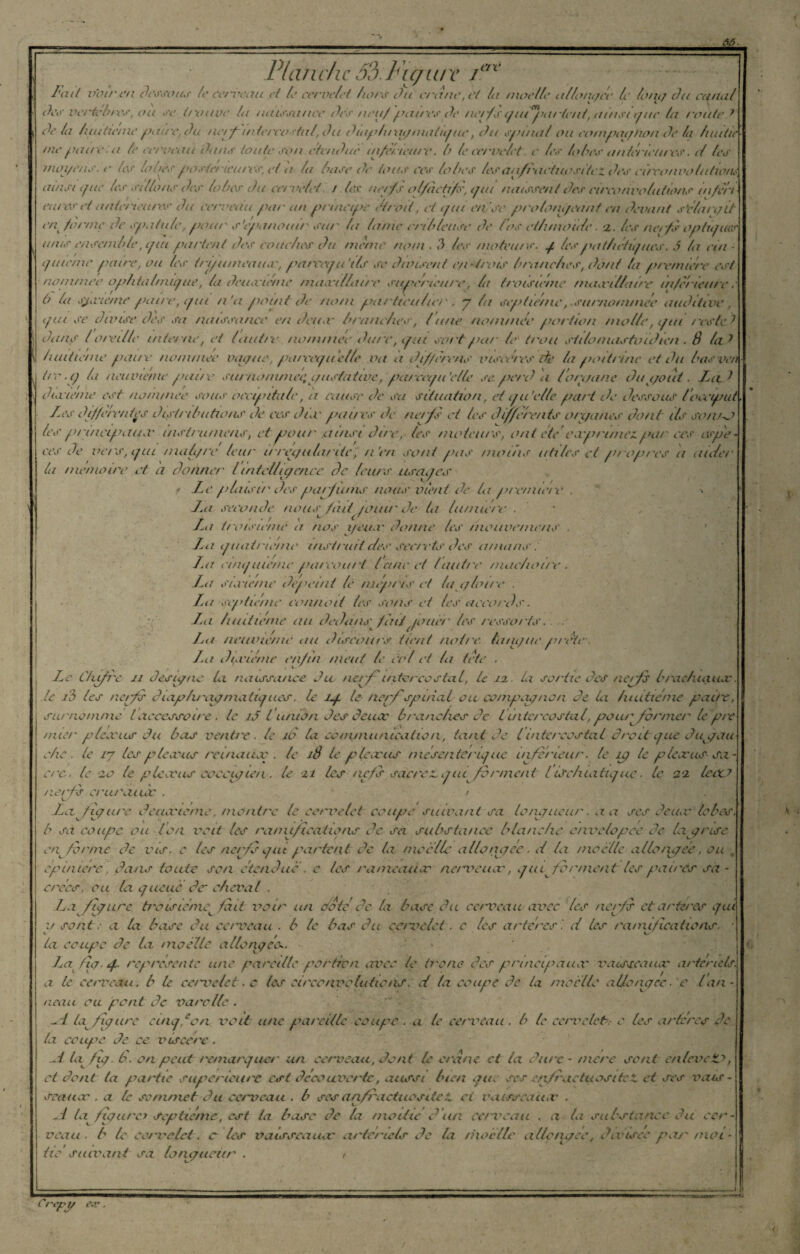 66.
Planche 53. Figure 1.ere
Fait voir en dessous le cerveau et le cervelet hors du crane, et la moelle allongée le long du canal
des vertèbres, où se trouve la naissance des neuf paires de nerfs qui partent, ainsi que la route
de la huitième paire, du nerf intercostal, du diaphragmatique, du spinal ou compagnon de la huitiè
me paire. a le cerveau dans toute son etendue inférieure. b le cervelet. c les lobes antérieures. d les
moyens. e les lobes postérieures, et à la base de tous ces lobes les anfractuositez des circonvolutions
ainsi que les sillons des lobes du cervelet. 1 les nerfs olfactifs, qui naissent des circonvolutions inféri
eures et antérieures du cerveau par un principe étroit, et qui en se prolongeant en devant s'elargit
en forme de spatule, pour s'épanouir sur la lame cribleuse de l'os ethmoide. 2. les nerfs optiques
unis ensemble, qui partent des couches du même nom. 3 les moteurs. 4 les pathétiques. 5 la cin-
quième paire, ou les trijumeaux, parcequ'ils se divisent en trois branches, dont la première est
nommée ophtalmique, la deuxième maxillaire supérieure, la troisième maxillaire inférieure.
6 la sixième paire, qui n'a point de nom particulier. 7 la septième, surnommée auditive,
qui se divise dès sa naissance en deux branches, l'une nommée portion molle, qui reste
dans l'oreille interne, et l'autre nommée dure, qui sort par le trou stilomastoidien. 8 la
huitième paire nommée vague, parcequ'elle va a différens viscères de la poitrine et du bas ven
tre. 9 la neuvième paire surnommée gustative, parcequ'elle se perd à l'organe du gout. La
dixième est nommée sous occipitale, a cause de sa situation, et qu'elle part de dessous l'occiput
Les différentes distributions de ces dix paires de nerfs et les différents organes dont ils sont
les principaux instrumens, et pour ainsi dire, les moteurs, ont été exprimez par ces espè-
ces de vers, qui malgré leur irregularité, n'en sont pas moins utiles et propres a aider
la mémoire et à donner l'intelligence de leurs usages
Le plaisir des parfums nous vient de la première.
La seconde nous fait jouir de la lumière.
La troisième à nos yeux donne les mouvemens.
La quatrième instruit des secrets des amans.
La cinquième parcourt l'une et l'autre machoire.
La sixième dépeint le mépris et la gloire.
La septième connoit les sons et les accords.
La huitième au dedans fait jouer les ressorts.
La neuvième au discours tient notre langue prête.
La dixième enfin meut le col et la tête.
Le Chifre 11 designe la naissance du nerf intercostal, le 12. la sortie des nerfs brachiaux.
le 13 les nerfs diaphragmatiques. le 14 le nerf spinal ou compagnon de la huitième paire,
surnommé l'accessoire. le 15 l'union des deux branches de l'intercostal, pour former le pre
mier plexus du bas ventre. le 16 la communication, tant de l'intercostal droit que du gau
che. le 17 les plexus reinaux. le 18 le plexus mesentérique inférieur. le 19 le plexus sa-
cré. le 20 le plexus coccigien. le 21 les nefs sacrez qui forment l'ischiatique. le 22 les
nerfs cruraux.
La figure deuxième, montre le cervelet coupé suivant sa longueur. a a ses deux lobes.
b sa coupe ou l'on voit les ramifications de sa substance blanche envelopée de la grise
en forme de vis. c les nerfs qui partent de la moëlle allongée. d la moëlle allongée, ou
epiniere, dans toute son etendue. e les rameaux nerveux, qui forment les paires sa-
crées, ou la queue de cheval.
La figure troisième fait voir un côté de la base du cerveau avec les nerfs et arteres qui
y sont: a la base du cerveau. b le bas du cervelet. c les artères. d les ramifications.
la coupe de la moëlle allongée.
La fig. 4. représente une pareille portion avec le tronc des principaux vaisseaux arteriels.
a le cerveau. b le cervelet. c les circonvolutions. d la coupe de la moëlle allongée. e l'an-
neau ou pont de varolle.
A la figure cinq.e on voit une pareille coupe. a le cerveau. b le cervelet. c les artères de
la coupe de ce viscère.
A la fig. 6. on peut remarquer un cerveau, dont le crâne et la dure-mere sont enlevez,
et dont la partie superieure est découverte, aussi bien que ses enfractuositez et ses vais-
seaux. a le sommet du cerveau. b ses anfractuositez et vaisseaux.
A la figure septième, est la base de la moitié d'un cerveau. a la substance du cer-
veau. b le cervelet. c les vaisseaux artériels de la moëlle allongée, divisée par moi-
tié suivant sa longueur.
Crepy ex.